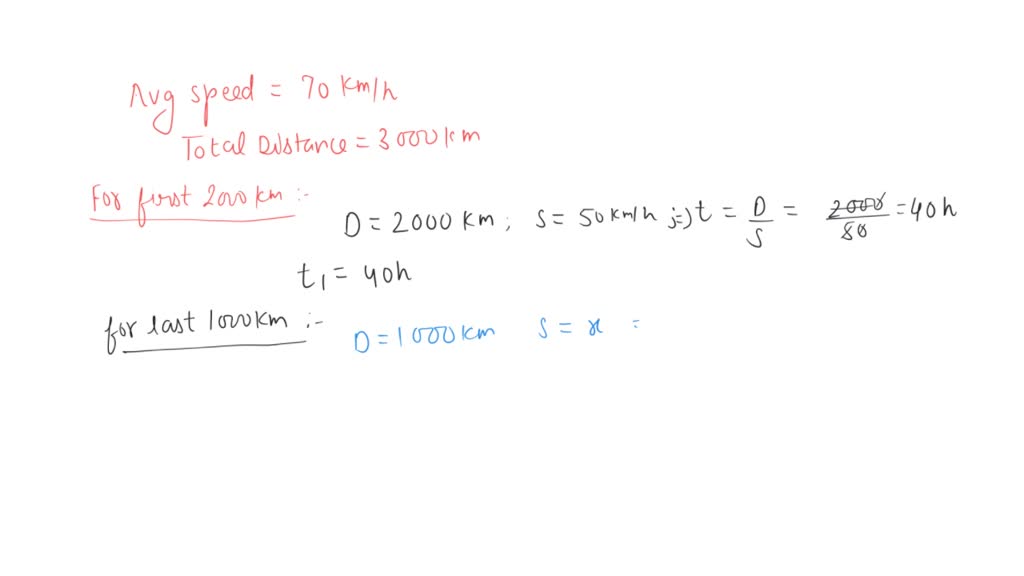 Avg speed = 70 km/h
Total Distance = 3000 km
For first 2000 km :-
D = 2000 km ; S = 50 km/h ;=) t = D/S = 2000/50 = 40h
t1 = 40h
for last 1000 km :-
D = 1000 km S = x =